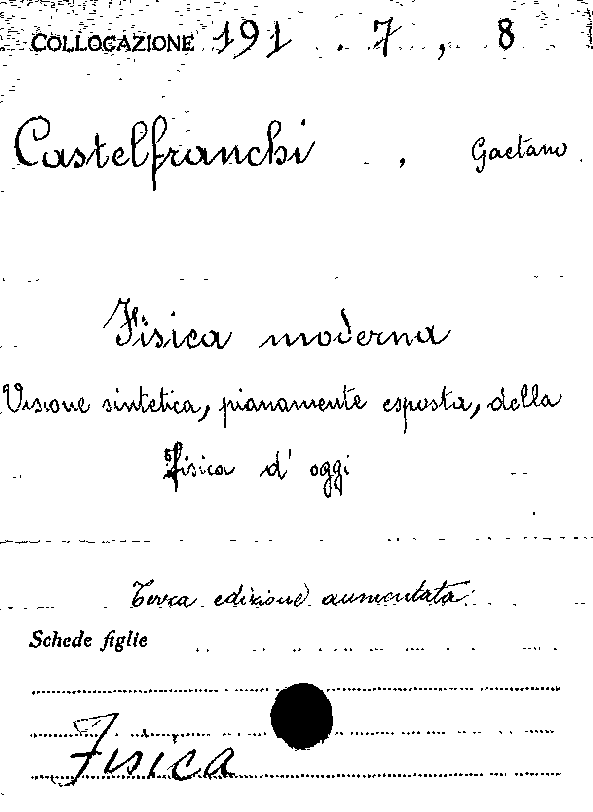 COLLOCAZIONE 191 . 7 , 8
Castelfranchi , Gaetano
Fisica moderna
Visione sintetica, pianamente esposta, della
fisica d' oggi
Terza edizione aumentata
Schede figlie
Fisica